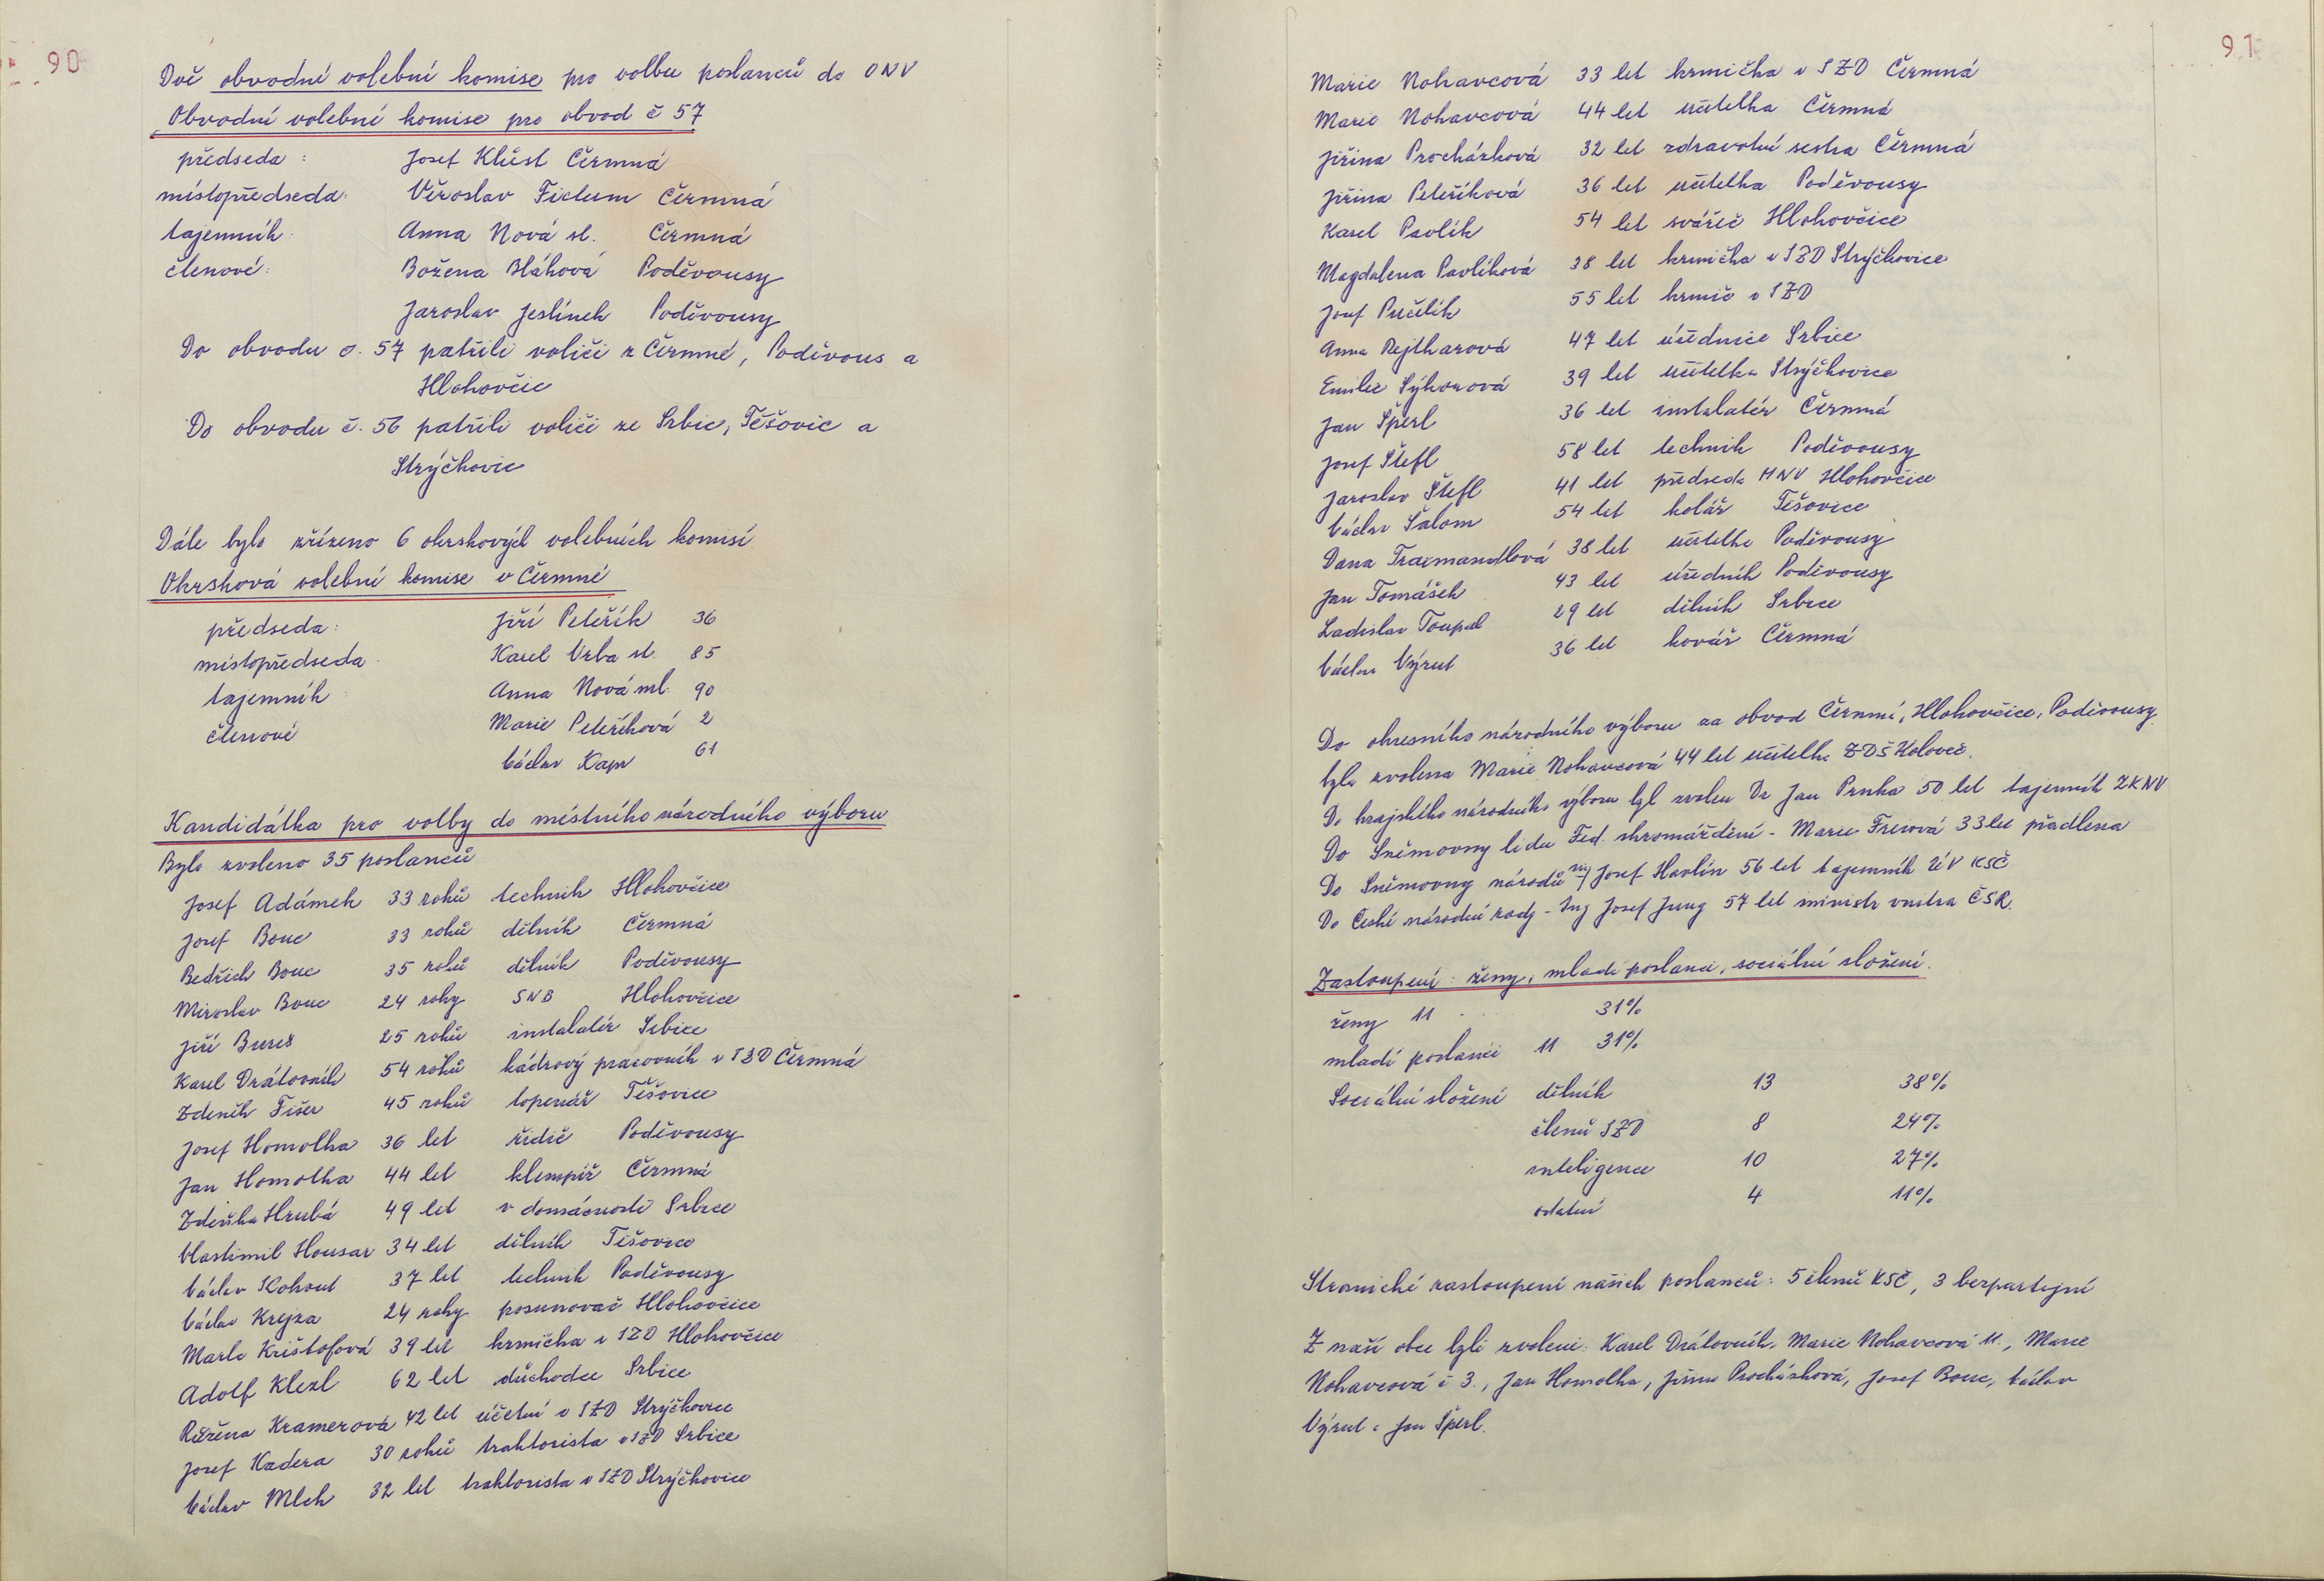 90
Dvě obvodní volební komise pro volbu poslanců do ONV
Obvodní volební komise pro obvod č 57
předseda : Josef Klůst Čermná
místopředseda: Věroslav Ticlum Čermná
tajemník: Anna Nová st. Čermná
členové: Božena Bláhová Poděvousy
Jaroslav Jeslínek Poděvousy
Do obvodu č. 57 patřili voliči z Čermné, Poděvous a
Hlohovčic
Do obvodu č. 56 patřili voliči ze Srbic, Těšovic a
Strýčkovic
Dále bylo zřízeno 6 okrskových volebních komisí
Okrsková volební komise v Čermné
předseda: Jiří Peteřík 36
místopředseda Karel Vrba st. 85
tajemník: Anna Nová ml. 90
členové Marie Peteříková 2
Václav Kapr 61
Kandidátka pro volby do místního národního výboru
Bylo zvoleno 35 poslanců
Josef Adámek 33 roků technik Hlohovčice
Josef Bouc 33 roků dělník Čermná
Bedřich Bouc 35 roků dělník Poděvousy
Miroslav Bouc 24 roky SNB Hlohovčice
Jiří Bureš 25 roků instalatér Srbice
Karel Drátovník 54 roků kádrový pracovník v JZD Čermná
Zdeněk Fišer 45 roků topenář Těšovice
Josef Homolka 36 let řidič Poděvousy
Jan Homolka 44 let klempíř Čermná
Zdeňka Hrubá 49 let v domácnosti Srbice
Vlastimil Housar 34 let dělník Těšovice
Václav Kohout 37 let technik Poděvousy
Václav Krejza 24 roky posunovač Hlohovčice
Marie Krištofová 39 let krmička v JZD Hlohovčice
Adolf Klezl 62 let důchodce Srbice
Růžena Kramerová 42 let účetní v JZD Strýčkovice
Josef Kadera 30 roků traktorista v JZD Srbice
Václav Mlch 32 let traktorista v JZD Strýčkovice
91
Marie Nohavcová 33 let krmička v JZD Čermná
Marie Nohavcová 44 let učitelka Čermná
Jiřina Procházková 32 let zdravotní sestra Čermná
Jiřina Peteříková 36 let učitelka Poděvousy
Karel Pavlík 54 let svářeč Hlohovčice
Magdalena Pavlíková 38 let krmička v JZD Strýčkovice
Josef Pučelík 55 let krmič v JZD
Anna Rejtharová 47 let úřednice Srbice
Emilie Sýkorová 39 let učitelka Strýčkovice
Jan Šperl 36 let instalatér Čermná
Josef Štefl 58 let technik Poděvousy
Jaroslav Štefl 41 let předseda MNV Hlohovčice
Václav Šalom 54 let kolář Těšovice
Dana Traxmandlová 38 let učitelka Poděvousy
Jan Tomášek 43 let úředník Poděvousy
Ladislav Toupal 29 let dělník Srbice
Václav Výrut 36 let kovář Čermná
Do okresního národního výboru za obvod Čermná, Hlohovčice, Poděvousy
byla zvolena Marie Nohavcová 44 let učitelka ZDŠ Koloveč.
Do krajského národního výboru byl zvolen Dr Jan Prnka 50 let tajemník ZKNV
Do Sněmovny lidu Fed. shromáždění - Marie Freiová 33 let přadlena
Do Sněmovny národů Josef Havlín 56 let tajemník ÚV KSČ
Do České národní rady - Ing Josef Jung 57 let ministr vnitra ČSR.
Zastoupení: ženy, mladí poslanci, sociální složení.
ženy 11 31%
mladí poslanci 11 31%
Sociální složení dělník 13 38%
členů JZD 8 24%
inteligence 10 27%
ostatní 4 11%
Stranické zastoupení našich poslanců: 5 členů KSČ, 3 bezpartijní
Z naší obce byli zvoleni: Karel Drátovník, Marie Nohavcová 11., Marie
Nohavcová č 3., Jan Homolka, Jiřina Procházková, Josef Bouc, Václav
Výrut a Jan Šperl.